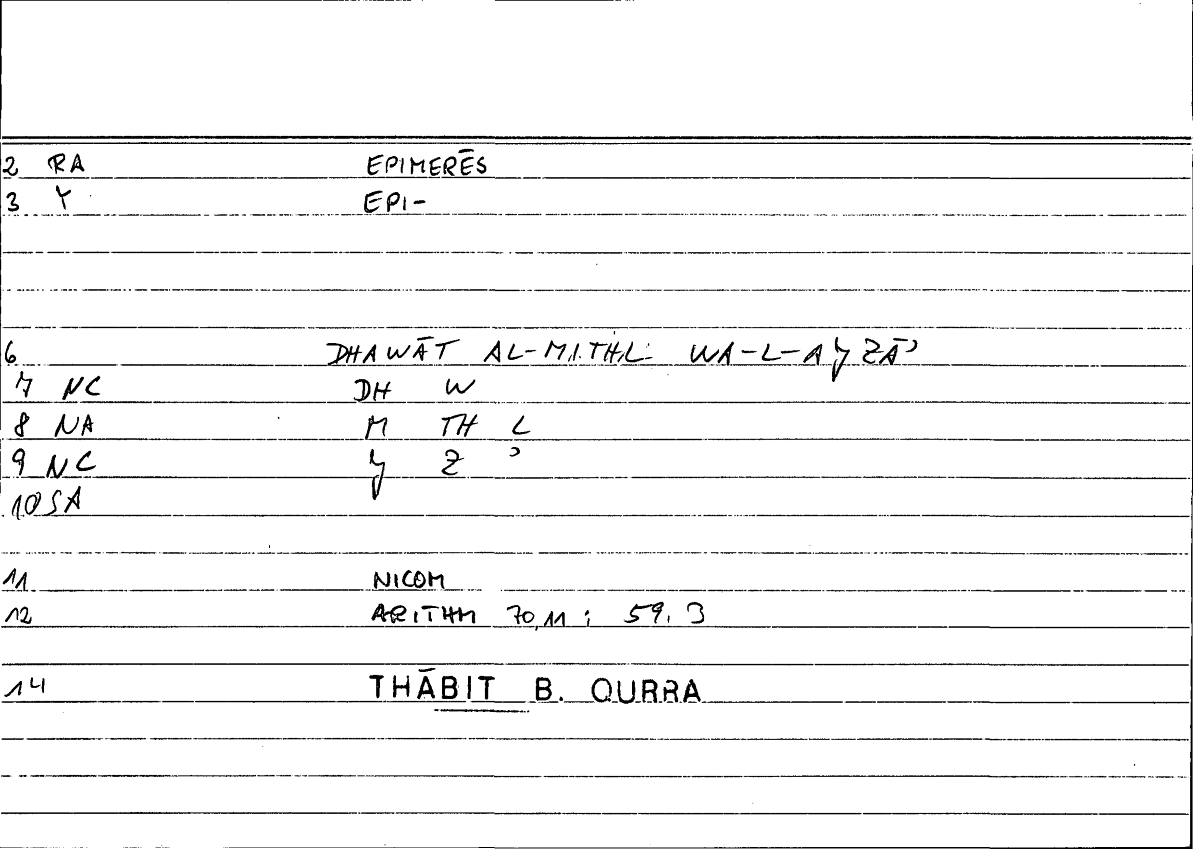 2 RA EPIMERĒS
3 Y EPI-
6 DHAWĀT AL-MITHL WA-L-AỷZĀʾ
7 NC DH W
8 NA M TH L
9 NC ỷ Z ʾ
10 SA
11 NICOM
12 ARITHM 70,11 ; 59. 3
14 THĀBIT B. QURRA